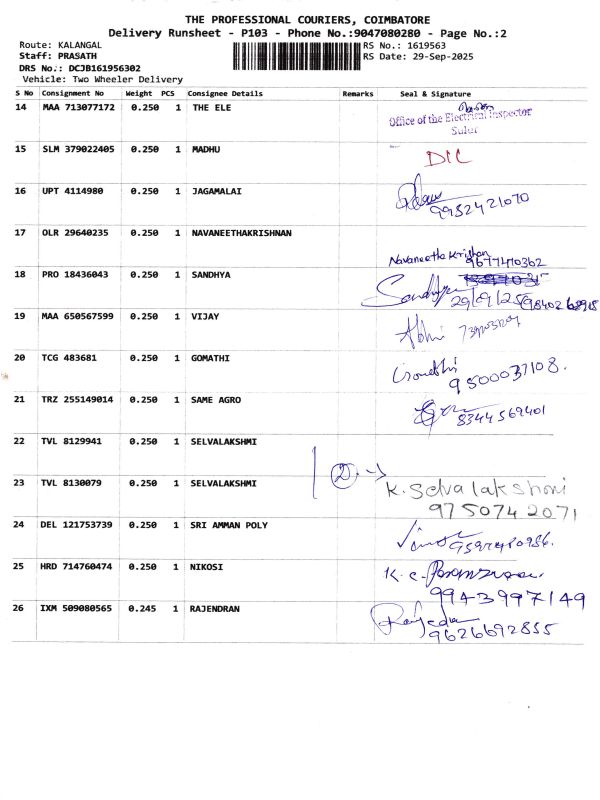 THE PROFESSIONAL COURIERS, COIMBATORE
Delivery Runsheet - P103 - Phone No.:9047080280 - Page No.:2
Route: KALANGAL RS No.: 1619563
Staff: PRASATH RS Date: 29-Sep-2025
DRS No.: DCJB161956302
Vehicle: Two Wheeler Delivery
S No Consignment No Weight PCS Consignee Details Remarks Seal & Signature
14 MAA 713077172 0.250 1 THE ELE
Office of the Electrical Inspector
Sulur
15 SLM 379022405 0.250 1 MADHU
DIC
16 UPT 4114980 0.250 1 JAGAMALAI
9952421070
17 OLR 29640235 0.250 1 NAVANEETHAKRISHNAN
Navaneetha Krishnan
9677470362
18 PRO 18436043 0.250 1 SANDHYA
Sandhya 29/09/25
19 MAA 650567599 0.250 1 VIJAY
Abhi
20 TCG 483681 0.250 1 GOMATHI
Gomathi
9500037108.
21 TRZ 255149014 0.250 1 SAME AGRO
8344569401
22 TVL 8129941 0.250 1 SELVALAKSHMI
2 →
23 TVL 8130079 0.250 1 SELVALAKSHMI
K. Selvalakshmi
9750742071
24 DEL 121753739 0.250 1 SRI AMMAN POLY
25 HRD 714760474 0.250 1 NIKOSI
K.C.
9943997149
26 IXM 509080565 0.245 1 RAJENDRAN
9626692855